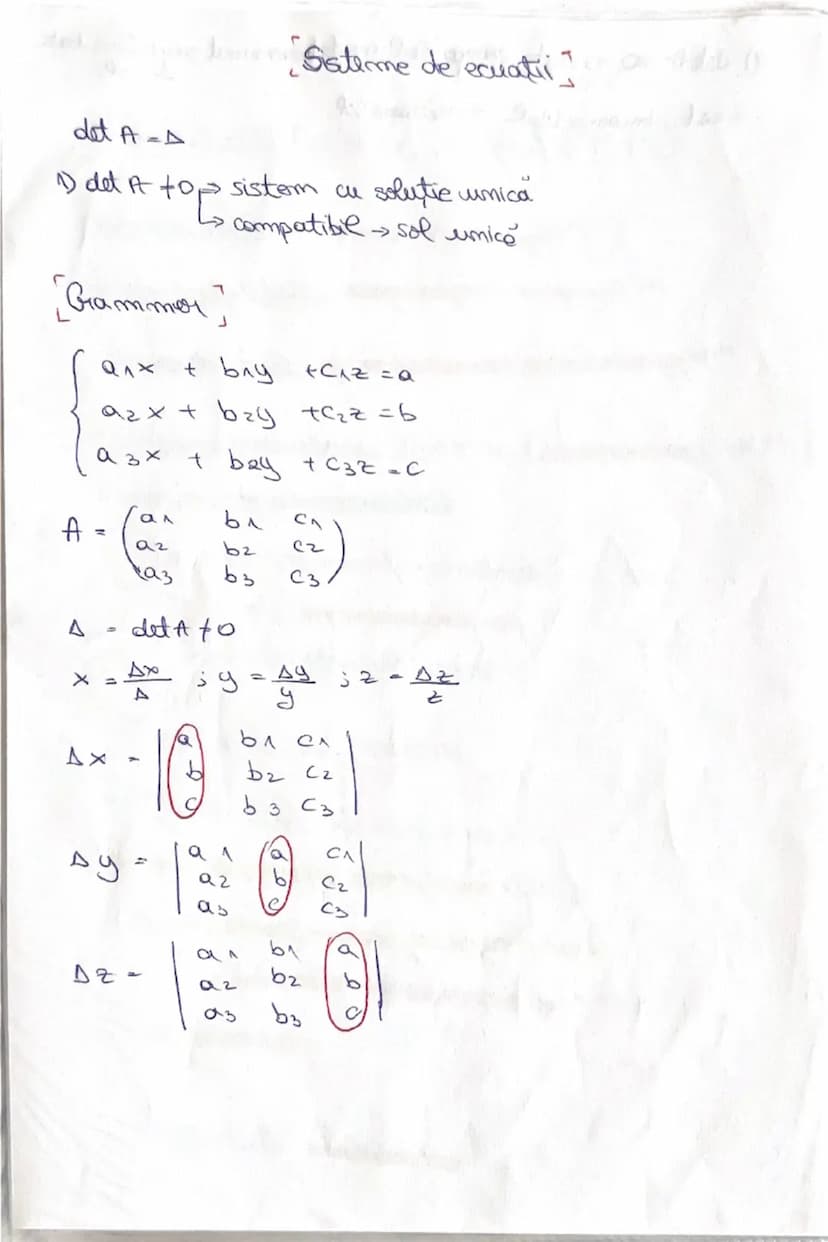 [Sisteme de ecuatii]
det A = Δ
1) det A ≠ 0 → sistem cu soluție unică
↳ compatibil → sol unică
[Crammer]
a1x + b1y + c1z = a
a2x + b2y + c2z = b
a3x + b2y + c3z = c
A = (a1 b1 c1
a2 b2 c2
a3 b3 c3)
Δ = det A ≠ 0
x = Δx/Δ ; y = Δy/y ; z = Δz/z
Δx = |a b1 c1|
|b b2 c2|
|c b3 c3|
Δy = |a1 a c1|
|a2 b c2|
|a3 c c3|
Δz = |a1 b1 a|
|a2 b2 b|
|a3 b3 c|